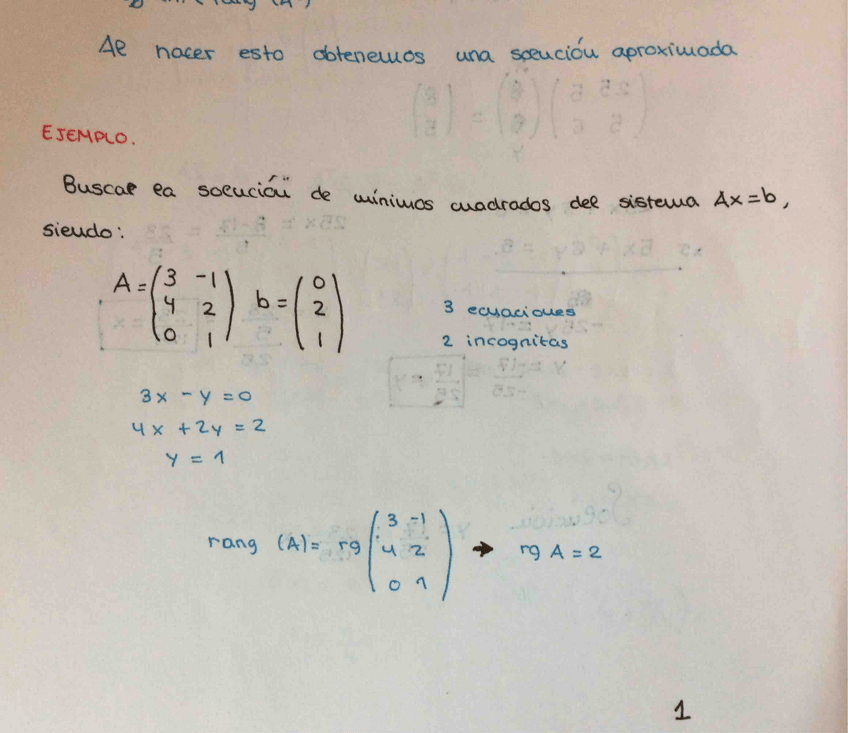 Al hacer esto obtenemos una solución aproximada
EJEMPLO.
Buscar la solución de mínimos cuadrados del sistema Ax=b,
siendo:
A = (3 -1; 4 2; 0 1) b = (0; 2; 1)
3 ecuaciones
2 incognitas
3x - y = 0
4x + 2y = 2
y = 1
rang (A) = rg (3 -1; 4 2; 0 1) → rg A = 2
1